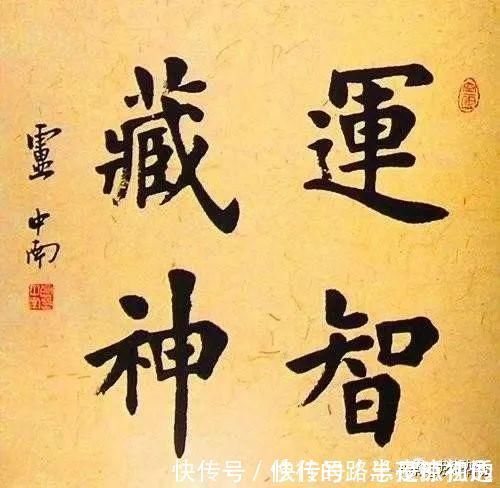 運智
藏神
盧中南
快传号 /